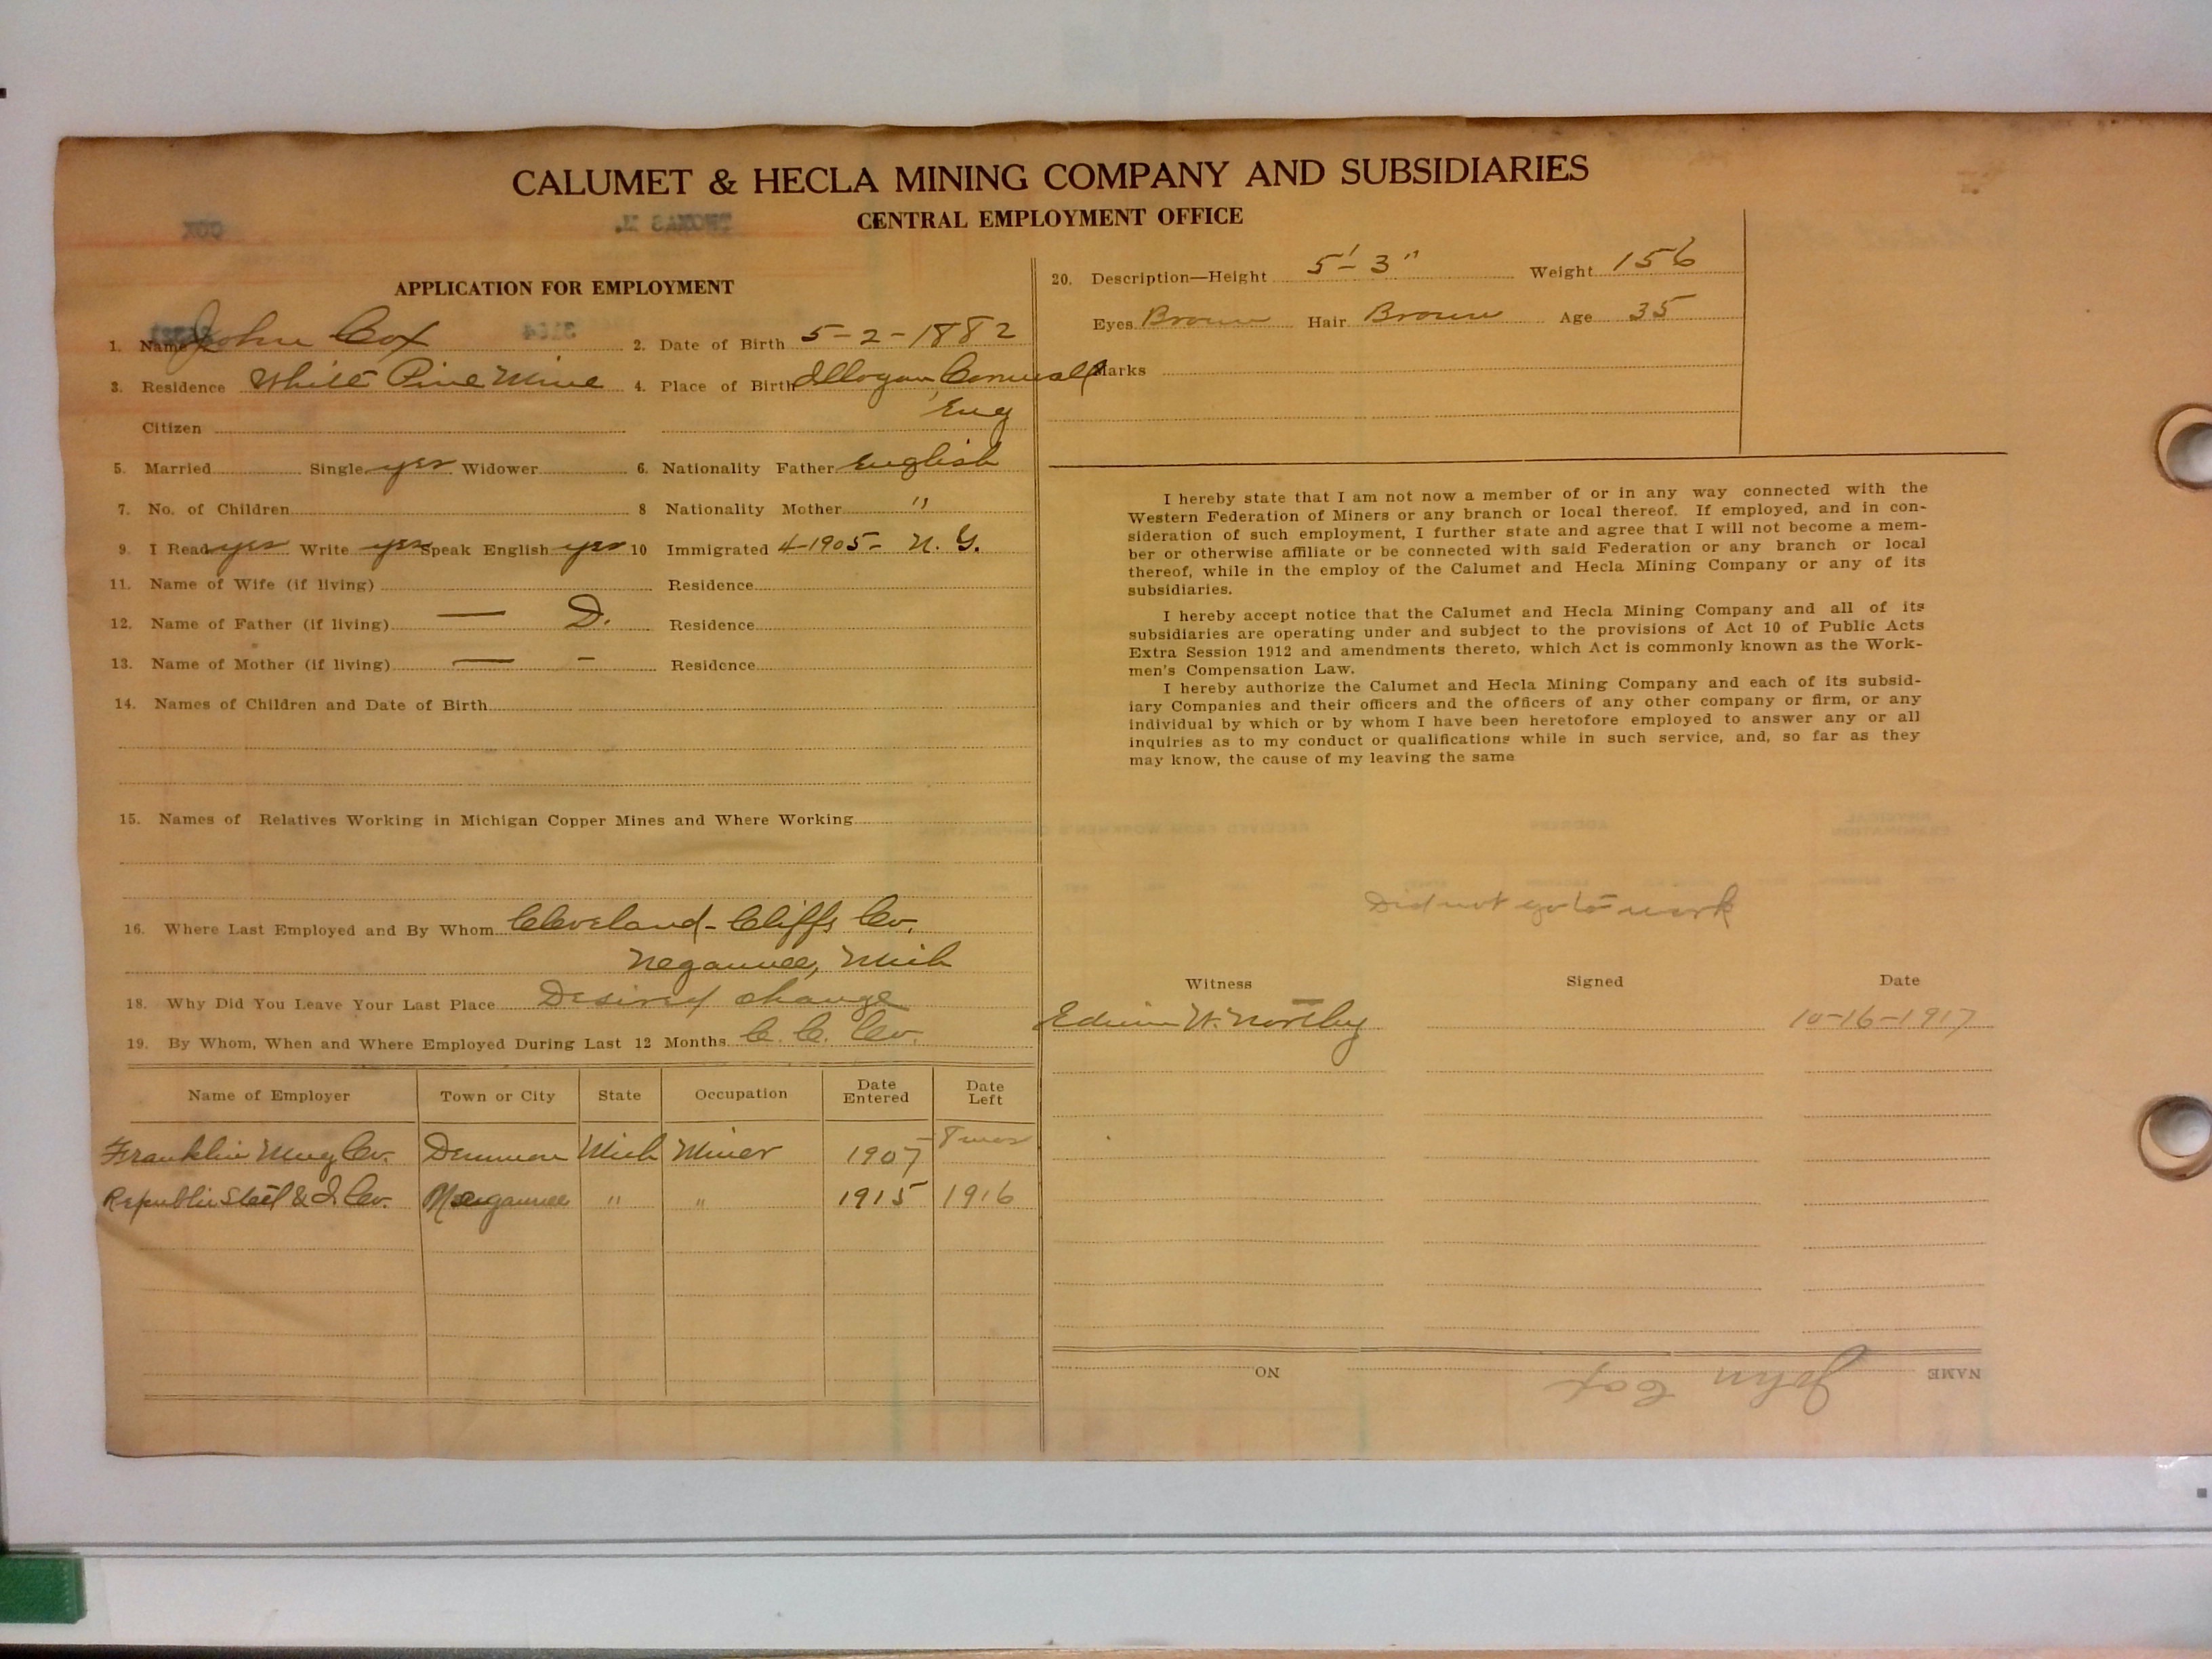 CALUMET & HECLA MINING COMPANY AND SUBSIDIARIES
CENTRAL EMPLOYMENT OFFICE
APPLICATION FOR EMPLOYMENT
1. Name John Cox 2. Date of Birth 5-2-1882
3. Residence White Pine Mine 4. Place of Birth Illogan, Cornwall
Eng
Citizen
5. Married Single yes Widower 6. Nationality Father English
7. No. of Children 8 Nationality Mother "
9. I Read yes Write yes Speak English yes 10 Immigrated 4-1905- N. Y.
11. Name of Wife (if living) Residence
12. Name of Father (if living) — D. Residence
13. Name of Mother (if living) — - Residence
14. Names of Children and Date of Birth
15. Names of Relatives Working in Michigan Copper Mines and Where Working
16. Where Last Employed and By Whom Cleveland-Cliffs Co.
Negaunee, Mich
18. Why Did You Leave Your Last Place Desired change
19. By Whom, When and Where Employed During Last 12 Months C. C. Co.
Name of Employer Town or City State Occupation Date Entered Date Left
Franklin Mng Co. Demmon Mich Miner 1907 - 8 mos
Republic Steel & I. Co. Negaunee " " 1915 1916
20. Description—Height 5'- 3" Weight 156
Eyes Brown Hair Brown Age 35
Marks
I hereby state that I am not now a member of or in any way connected with the
Western Federation of Miners or any branch or local thereof. If employed, and in con-
sideration of such employment, I further state and agree that I will not become a mem-
ber or otherwise affiliate or be connected with said Federation or any branch or local
thereof, while in the employ of the Calumet and Hecla Mining Company or any of its
subsidiaries.
I hereby accept notice that the Calumet and Hecla Mining Company and all of its
subsidiaries are operating under and subject to the provisions of Act 10 of Public Acts
Extra Session 1912 and amendments thereto, which Act is commonly known as the Work-
men's Compensation Law.
I hereby authorize the Calumet and Hecla Mining Company and each of its subsid-
iary Companies and their officers and the officers of any other company or firm, or any
individual by which or by whom I have been heretofore employed to answer any or all
inquiries as to my conduct or qualifications while in such service, and, so far as they
may know, the cause of my leaving the same
Did not go to work
Witness Signed Date
Edwin W. Northey 10-16-1917
NAME John Cox NO